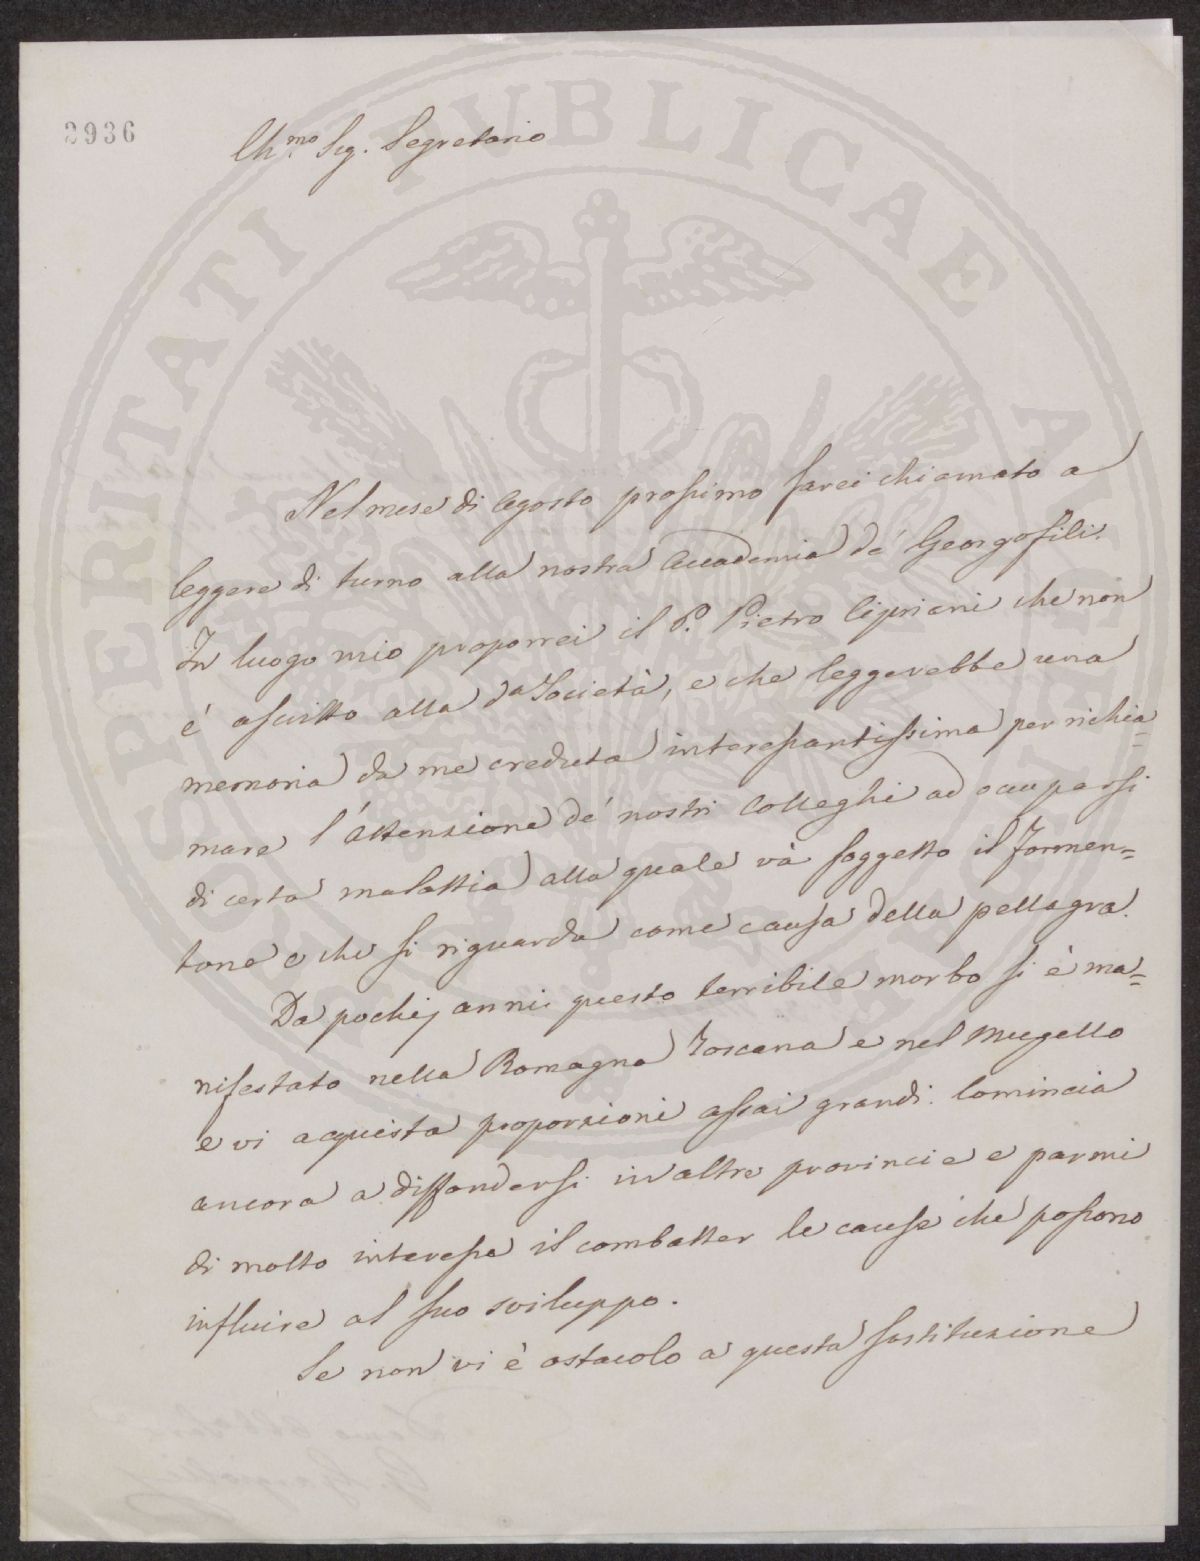 2936
Ch.mo Sig. Segretario
Nel mese di Agosto prossimo sarei chiamato a
leggere di turno alla nostra Accademia de' Georgofili.
In luogo mio proporrei il P. Pietro Cipriani che non
è ascritto alla da Società, e che leggerebbe una
memoria da me creduta interessantissima per richia=
mare l'attenzione de' nostri Colleghi ad occuparsi
di certa malattia alla quale và soggetto il Formen=
tone e che si riguarda come causa della pellagra.
Da pochi anni questo terribile morbo si è ma=
nifestato nella Romagna Toscana e nel Mugello
e vi acquista proporzioni assai grandi. Comincia
ancora a diffondersi in altre provincie e parmi
di molto interesse il combatter le cause che possono
influire al suo sviluppo.
Se non vi è ostacolo a questa sostituzione
PROSPERITATI PUBLICAE AUGENDAE